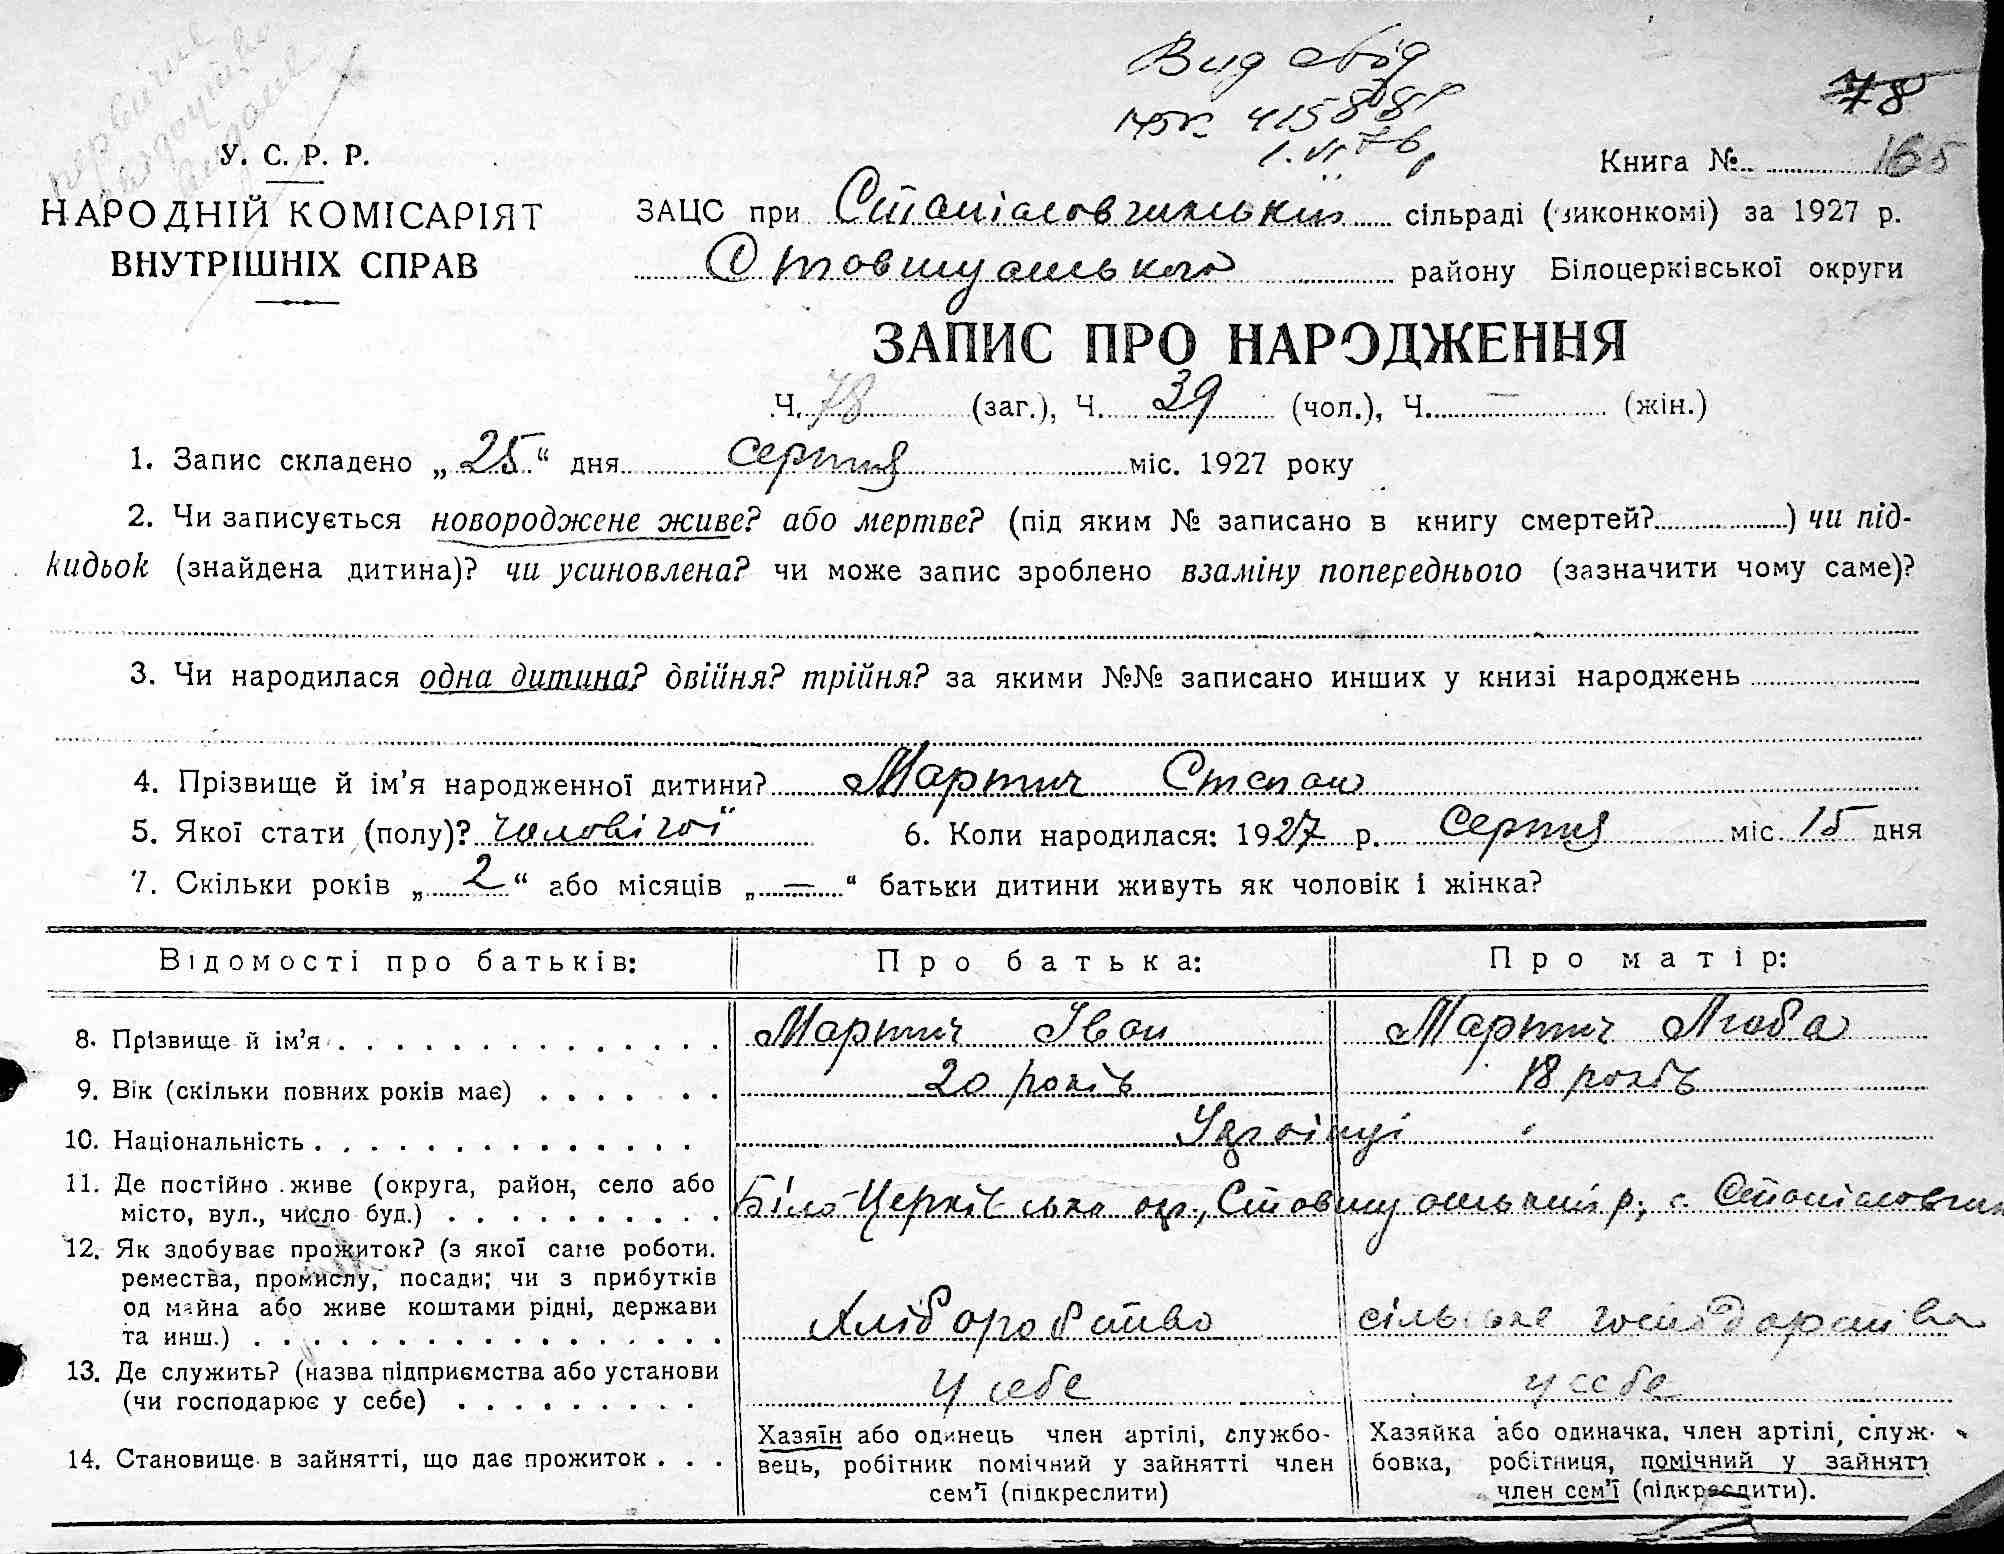 Вид свід
415888
78
У. С. Р. Р.
Книга №
165
НАРОДНІЙ КОМІСАРІЯТ
ВНУТРІШНІХ СПРАВ
ЗАЦС при Станіславчинській сільраді (виконкомі) за 1927 р.
Ставищанського району Білоцерківської округи
ЗАПИС ПРО НАРОДЖЕННЯ
Ч. 78 (заг.), Ч. 39 (чол.), Ч. — (жін.)
1. Запис складено „25“ дня серпня міс. 1927 року
2. Чи записується новороджене живе? або мертве? (під яким № записано в книгу смертей? ) чи під-
кидьок (знайдена дитина)? чи усиновлена? чи може запис зроблено взаміну попереднього (зазначити чому саме)?
3. Чи народилася одна дитина? двійня? трійня? за якими №№ записано инших у книзі народжень
4. Прізвище й ім’я народженної дитини? Мартич Степан
5. Якої стати (полу)? чоловічої 6. Коли народилася: 1927 р. Серпня міс. 15 дня
7. Скільки років „2“ або місяців „—“ батьки дитини живуть як чоловік і жінка?
Відомості про батьків: Про батька: Про матір:
8. Прізвище й ім’я . . . . . . . . . . . . . . Мартич Іван Мартич Люба
9. Вік (скільки повних років має) . . . . . . . 20 років 18 років
10. Національність . . . . . . . . . . . . . . Українці
11. Де постійно живе (округа, район, село або
місто, вул., число буд.) . . . . . . . . . . Біло-Церківська окр., Ставищанський р., с. Станіславчик
12. Як здобуває прожиток? (з якої саме роботи.
ремества, промислу, посади; чи з прибутків
од майна або живе коштами рідні, держави
та инш.) . . . . . . . . . . . . . . . . . Хліборобство сільське господарство
13. Де служить? (назва підприємства або установи
(чи господарює у себе) . . . . . . . . . у себе у себе
14. Становище в зайнятті, що дає прожиток . . . Хазяїн або одинець член артілі, службо-
вець, робітник помічний у зайнятті член
сем’ї (підкреслити)
Хазяйка або одиначка, член артілі, служ-
бовка, робітниця, помічний у зайнятт
член сем’ї (підкреслити).